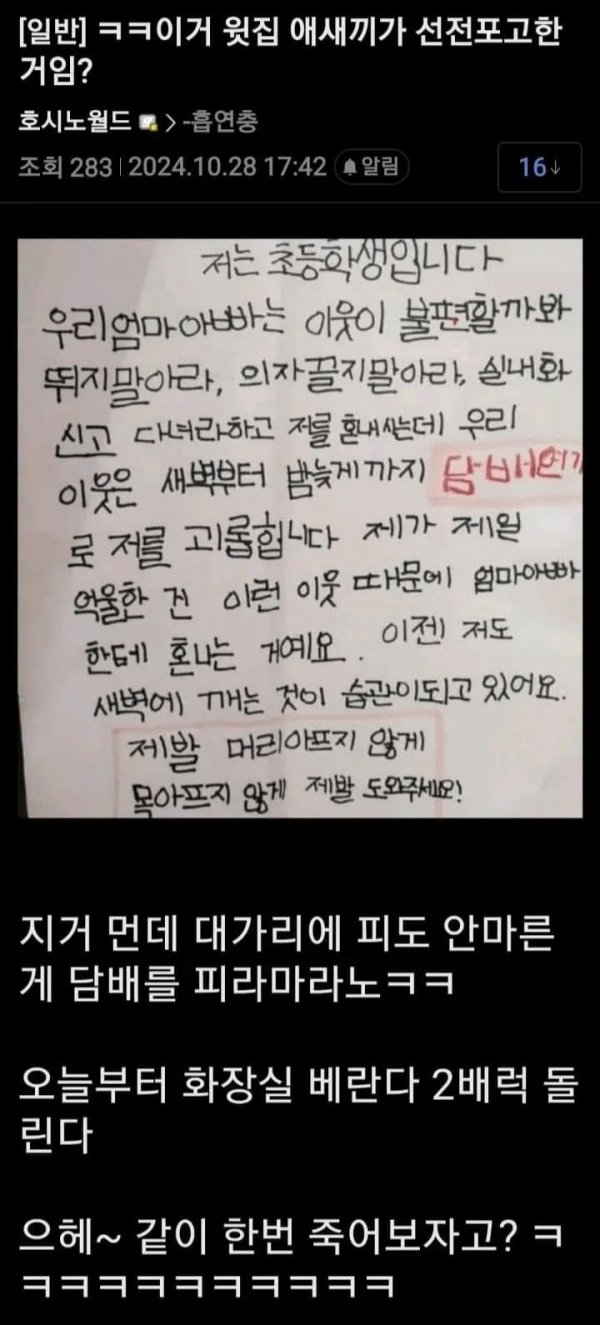 [일반] ㅋㅋ이거 윗집 애새끼가 선전포고한
거임?
호시노월드 > -흡연충
조회 283 | 2024.10.28 17:42 알림
16↓
저는 초등학생입니다
우리엄마아빠는 이웃이 불편할까봐
뛰지말아라, 의자끌지말아라, 실내화
신고 다녀라하고 저를 혼내싸는데 우리
이웃은 새벽부터 밤늦게까지 담배연기
로 저를 괴롭힙니다 제가 제일
억울한 건 이런 이웃 때문에 엄마아빠
한테 혼나는 거예요. 이젠 저도
새벽에 깨는 것이 습관이되고 있어요.
제발 머리아프지 않게
목아프지 않게 제발 도와주세요!
지거 먼데 대가리에 피도 안마른
게 담배를 피라마라노ㅋㅋ
오늘부터 화장실 베란다 2배럭 돌
린다
으헤~ 같이 한번 죽어보자고? ㅋ
ㅋㅋㅋㅋㅋㅋㅋㅋㅋㅋ